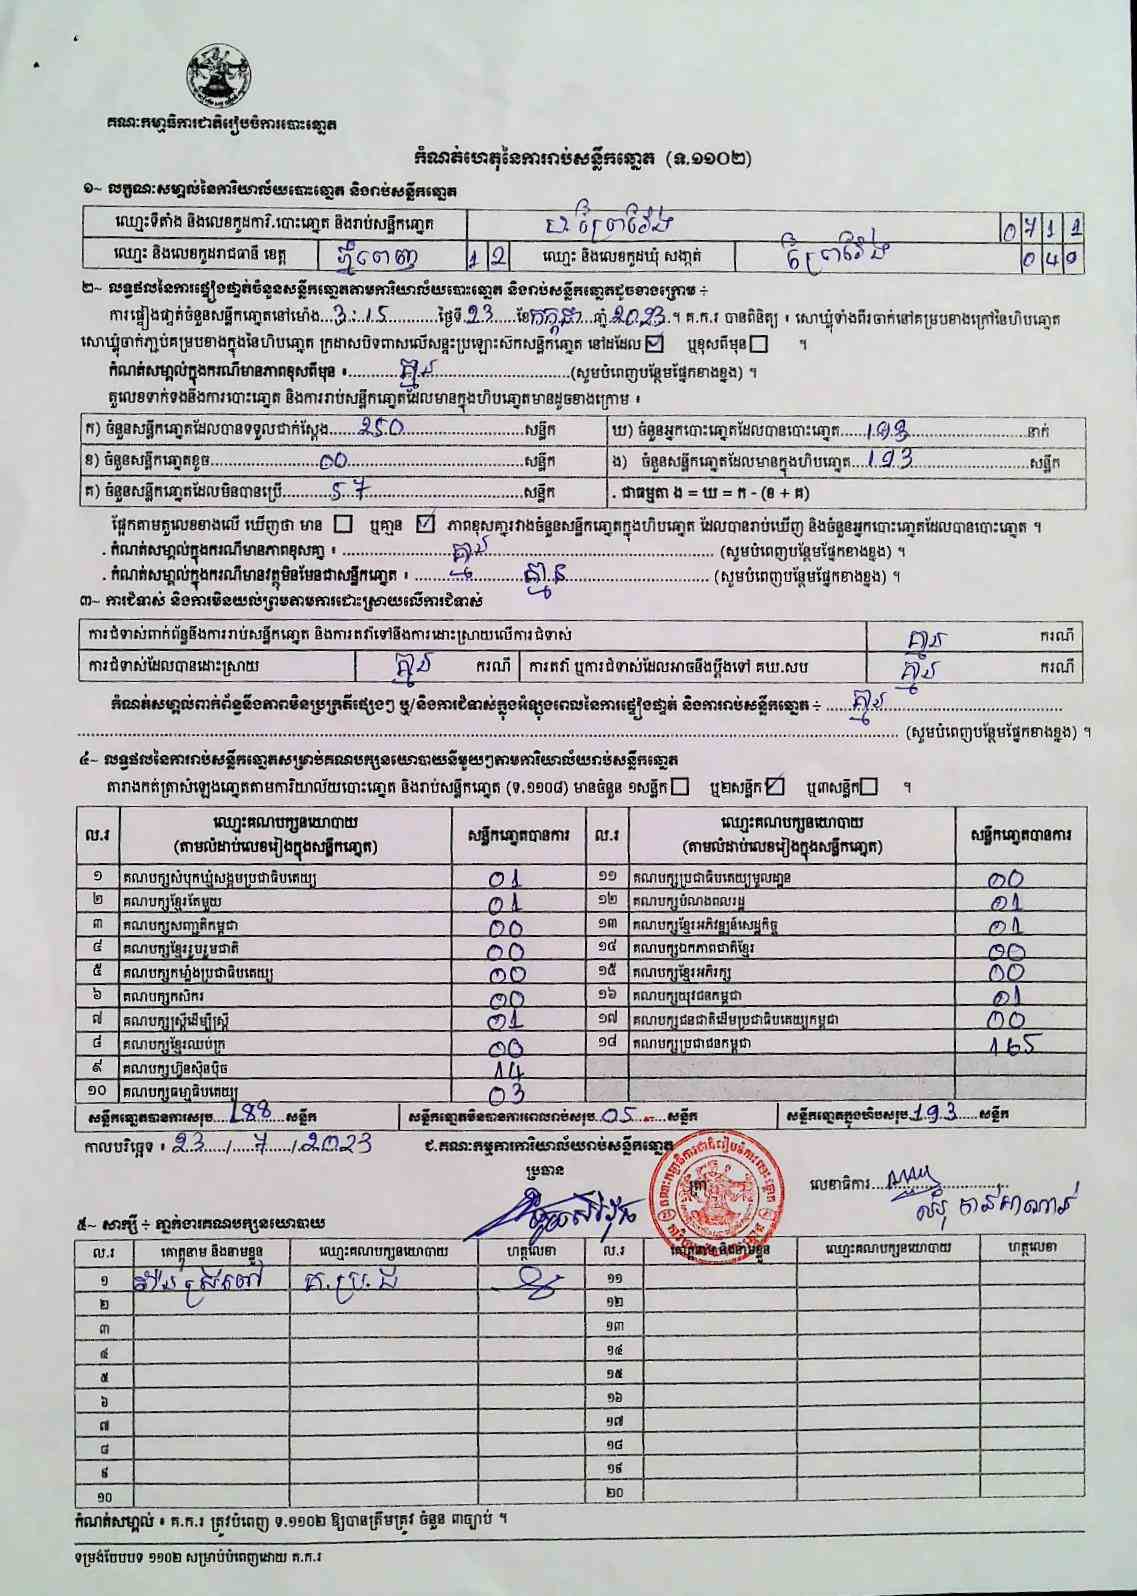 គណៈកម្មាធិការជាតិរៀបចំការបោះឆ្នោត
កំណត់ហេតុនៃការរាប់សន្លឹកឆ្នោត (ទ.១១០២)
១~ លក្ខណៈសម្គាល់នៃការិយាល័យបោះឆ្នោត និងរាប់សន្លឹកឆ្នោត
ឈ្មោះទីតាំង និងលេខកូដការិ.បោះឆ្នោត និងរាប់សន្លឹកឆ្នោត ប.ព្រៃវែង 0711
ឈ្មោះ និងលេខកូដរាជធានី ខេត្ត ភ្នំពេញ 12 ឈ្មោះ និងលេខកូដឃុំ សង្កាត់ ព្រៃវែង 040
២~ លទ្ធផលនៃការផ្ទៀងផ្ទាត់ចំនួនសន្លឹកឆ្នោតតាមការិយាល័យបោះឆ្នោត និងរាប់សន្លឹកឆ្នោតដូចខាងក្រោម ÷
ការផ្ទៀងផ្ទាត់ចំនួនសន្លឹកឆ្នោតនៅម៉ោង...3:15...ថ្ងៃទី.23...ខែកក្កដា...ឆ្នាំ.2023.។ គ.ក.រ បានពិនិត្យ ៖ សោឃ្លុំទាំងពីរចាក់នៅគម្របខាងក្រៅនៃហិបឆ្នោត
សោឃ្លុំចាក់ភ្ជាប់គម្របខាងក្នុងនៃហិបឆ្នោត ក្រដាសបិទពាសលើសន្ទះប្រឡោះស៊កសន្លឹកឆ្នោត នៅដដែល ☑ ឬខុសពីមុន ☐ ។
កំណត់សម្គាល់ក្នុងករណីមានភាពខុសពីមុន ៖...គ្មាន...(សូមបំពេញបន្ថែមផ្នែកខាងខ្នង) ។
តួលេខទាក់ទងនឹងការបោះឆ្នោត និងការរាប់សន្លឹកឆ្នោតដែលមានក្នុងហិបឆ្នោតមានដូចខាងក្រោម ៖
ក) ចំនួនសន្លឹកឆ្នោតដែលបានទទួលជាក់ស្ដែង...250...សន្លឹក ឃ) ចំនួនអ្នកបោះឆ្នោតដែលបានបោះឆ្នោត...193...នាក់
ខ) ចំនួនសន្លឹកឆ្នោតខូច...00...សន្លឹក ង) ចំនួនសន្លឹកឆ្នោតដែលមានក្នុងហិបឆ្នោត...193...សន្លឹក
គ) ចំនួនសន្លឹកឆ្នោតដែលមិនបានប្រើ...57...សន្លឹក . ជាធម្មតា ង = ឃ = ក - (ខ + គ)
ផ្អែកតាមតួលេខខាងលើ ឃើញថា មាន ☐ ឬគ្មាន ☑ ភាពខុសគ្នារវាងចំនួនសន្លឹកឆ្នោតក្នុងហិបឆ្នោត ដែលបានរាប់ឃើញ និងចំនួនអ្នកបោះឆ្នោតដែលបានបោះឆ្នោត ។
. កំណត់សម្គាល់ក្នុងករណីមានភាពខុសគ្នា ៖ ...គ្មាន... (សូមបំពេញបន្ថែមផ្នែកខាងខ្នង) ។
. កំណត់សម្គាល់ក្នុងករណីមានវត្ថុមិនមែនជាសន្លឹកឆ្នោត ៖ ...គ្មាន... (សូមបំពេញបន្ថែមផ្នែកខាងខ្នង) ។
៣~ ការជំទាស់ និងការមិនយល់ព្រមតាមការដោះស្រាយលើការជំទាស់
ការជំទាស់ពាក់ព័ន្ធនឹងការរាប់សន្លឹកឆ្នោត និងការតវ៉ាទៅនឹងការដោះស្រាយលើការជំទាស់ គ្មាន ករណី
ការជំទាស់ដែលបានដោះស្រាយ គ្មាន ករណី ការតវ៉ា ឬការជំទាស់ដែលអាចនឹងប្ដឹងទៅ គឃ.សប គ្មាន ករណី
កំណត់សម្គាល់ពាក់ព័ន្ធនឹងភាពមិនប្រក្រតីផ្សេងៗ ឬ/និងការជំទាស់ក្នុងអំឡុងពេលនៃការផ្ទៀងផ្ទាត់ និងការរាប់សន្លឹកឆ្នោត ÷ ...គ្មាន...
(សូមបំពេញបន្ថែមផ្នែកខាងខ្នង) ។
៤~ លទ្ធផលនៃការរាប់សន្លឹកឆ្នោតសម្រាប់គណបក្សនយោបាយនីមួយៗតាមការិយាល័យរាប់សន្លឹកឆ្នោត
តារាងកត់ត្រាសំឡេងឆ្នោតតាមការិយាល័យបោះឆ្នោត និងរាប់សន្លឹកឆ្នោត (ទ.១១០៨) មានចំនួន ១សន្លឹក ☐ ឬ២សន្លឹក ☑ ឬ៣សន្លឹក ☐ ។
ល.រ ឈ្មោះគណបក្សនយោបាយ (តាមលំដាប់លេខរៀងក្នុងសន្លឹកឆ្នោត) សន្លឹកឆ្នោតបានការ ល.រ ឈ្មោះគណបក្សនយោបាយ (តាមលំដាប់លេខរៀងក្នុងសន្លឹកឆ្នោត) សន្លឹកឆ្នោតបានការ
១ គណបក្សសំបុកឃ្មុំសង្គមប្រជាធិបតេយ្យ 01 ១១ គណបក្សប្រជាធិបតេយ្យមូលដ្ឋាន 00
២ គណបក្សខ្មែរតែមួយ 01 ១២ គណបក្សបំណងពលរដ្ឋ 01
៣ គណបក្សសញ្ជាតិកម្ពុជា 00 ១៣ គណបក្សខ្មែរអភិវឌ្ឍន៍សេដ្ឋកិច្ច 01
៤ គណបក្សខ្មែររួបរួមជាតិ 00 ១៤ គណបក្សឯកភាពជាតិខ្មែរ 00
៥ គណបក្សកម្លាំងប្រជាធិបតេយ្យ 00 ១៥ គណបក្សខ្មែរអភិរក្ស 00
៦ គណបក្សកសិករ 00 ១៦ គណបក្សយុវជនកម្ពុជា 01
៧ គណបក្សស្រ្តីដើម្បីស្រ្តី 01 ១៧ គណបក្សជនជាតិដើមប្រជាធិបតេយ្យកម្ពុជា 00
៨ គណបក្សខ្មែរឈប់ក្រ 00 ១៨ គណបក្សប្រជាជនកម្ពុជា 165
៩ គណបក្សហ៊្វុនស៊ិនប៉ិច 14
១០ គណបក្សធម្មាធិបតេយ្យ 03
សន្លឹកឆ្នោតបានការសរុប...188...សន្លឹក សន្លឹកឆ្នោតមិនបានការពេលរាប់សរុប...05...សន្លឹក សន្លឹកឆ្នោតក្នុងហិបសរុប...193...សន្លឹក
កាលបរិច្ឆេទ ៖ 23.../...7.../.2023 ជ.គណៈកម្មការការិយាល័យរាប់សន្លឹកឆ្នោត
ប្រធាន ត្រា លេខាធិការ...
៥~ សាក្សី ÷ ភ្នាក់ងារគណបក្សនយោបាយ
ល.រ គោត្តនាម និងនាមខ្លួន ឈ្មោះគណបក្សនយោបាយ ហត្ថលេខា ល.រ គោត្តនាម និងនាមខ្លួន ឈ្មោះគណបក្សនយោបាយ ហត្ថលេខា
១ គ.ប្រ.ជ ១១
២ ១២
៣ ១៣
៤ ១៤
៥ ១៥
៦ ១៦
៧ ១៧
៨ ១៨
៩ ១៩
១០ ២០
កំណត់សម្គាល់ ៖ គ.ក.រ ត្រូវបំពេញ ទ.១១០២ ឱ្យបានត្រឹមត្រូវ ចំនួន ៣ច្បាប់ ។
ទម្រង់បែបបទ ១១០២ សម្រាប់បំពេញដោយ គ.ក.រ